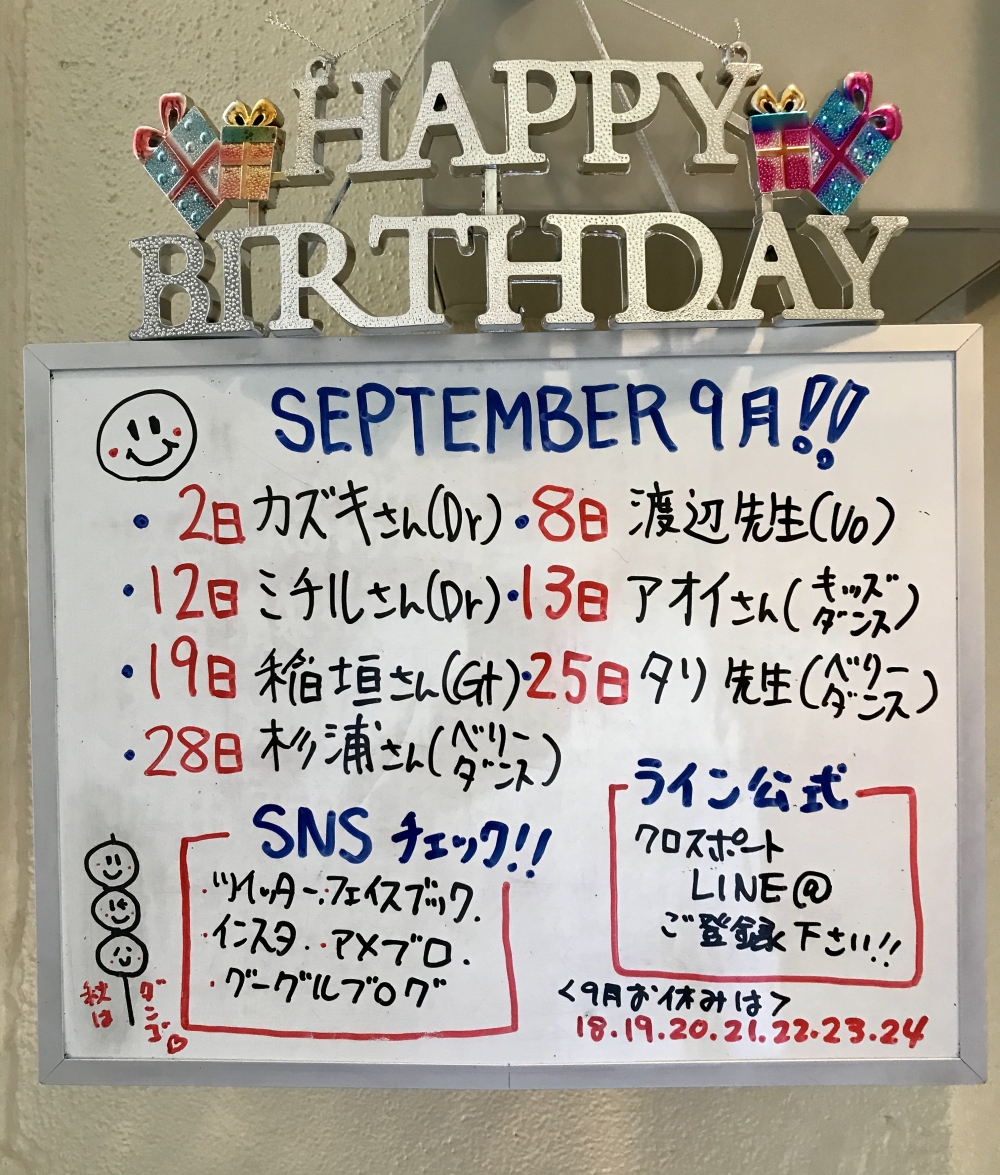 HAPPY
BIRTHDAY
SEPTEMBER 9月!!
・2日 カズキさん(Dr) ・8日 渡辺先生(Vo)
・12日 ミチルさん(Dr) ・13日 アオイさん(キッズダンス)
・19日 稲垣さん(Gt) ・25日 タリ先生(ベリーダンス)
・28日 杉浦さん(ベリーダンス)
SNSチェック!!
・ツイッター・フェイスブック.
・インスタ.・アメブロ.
・グーグルブログ
ライン公式
クロスポート
LINE@
ご登録下さい!!
秋は
ダンゴ♡
<9月お休みは>
18.19.20.21.22.23.24